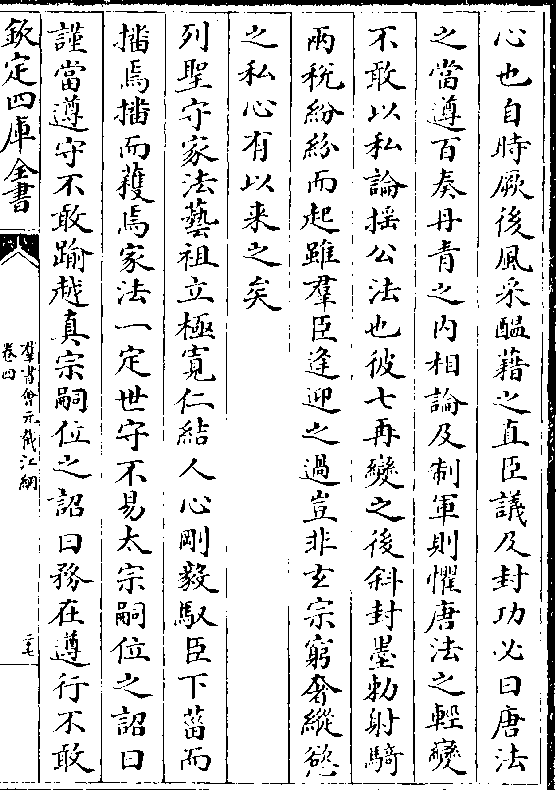 心也自時厥後風采醞藉之直臣議及封功必曰唐法
之當遵百奏丹青之内相論及制軍則懼唐法之輕變
不敢以私論揺公法也彼七再變之後斜封墨勅射騎
兩稅紛紛而起雖羣臣逢迎之過豈非玄宗窮奢縱慾
之私心有以来之矣
列聖守家法藝祖立極寛仁結人心剛毅馭臣下菑而
播焉播而蔓焉家法一定世守不易太宗嗣位之詔曰
謹當遵守不敢踰越真宗嗣位之詔曰務在遵行不敢
欽定四庫全書
羣書會元截江網
卷四
三七